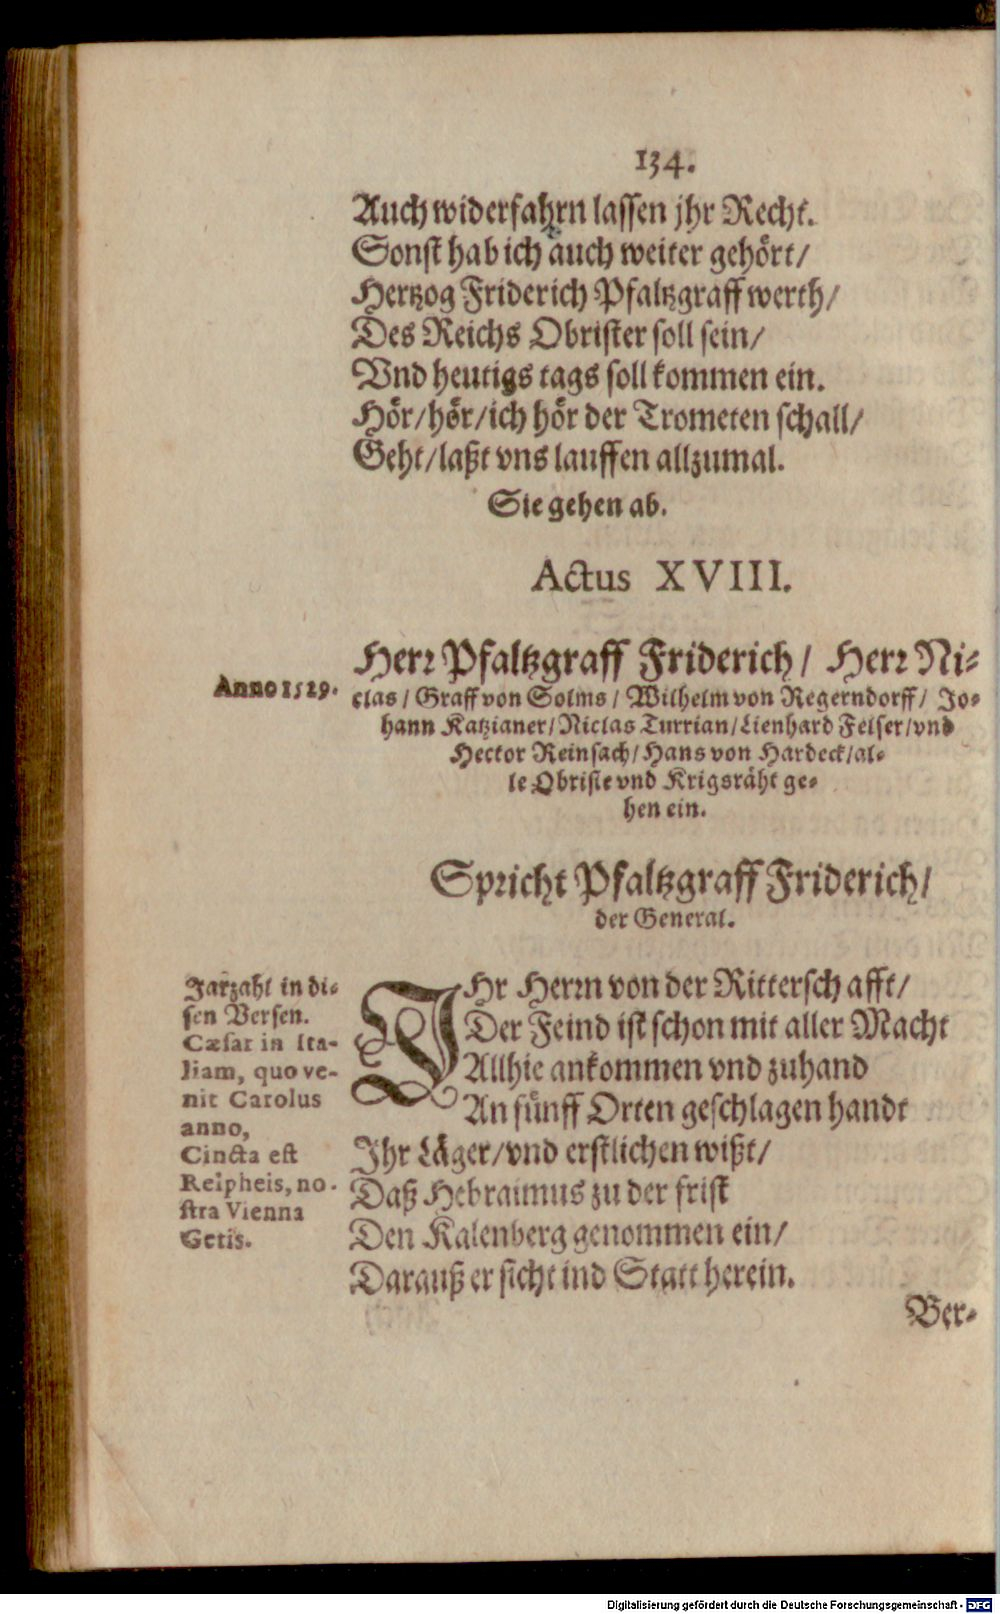 134.
Auch widerfahrn lassen jhr Recht.
Sonst hab ich auch weiter gehört/
Hertzog Friderich Pfaltzgraff werth/
Des Reichs Obrister soll sein/
Vnd heutigs tags soll kommen ein.
Hör/hör/ich hör der Trometen schall/
Geht/laßt vns lauffen allzumal.
Sie gehen ab.
Actus XVIII.
Anno 1529.
Herr Pfaltzgraff Friderich/ Herr Ni-
clas/ Graff von Solms/ Wilhelm von Regerndorff/ Jo-
hann Katzianer/Niclas Turrian/Lienhard Felser/vnd
Hector Reinsach/Hans von Hardeck/al-
le Obriste vnd Krigsräht ge-
hen ein.
Spricht Pfaltzgraff Friderich/
der General.
Jarzahl in di-
sen Versen.
Cæsar in Ita-
liam, quo ve-
nit Carolus
anno,
Cincta est
Reipheis, no-
stra Vienna
Getis.
JHr Herrn von der Ritterschafft/
Der Feind ist schon mit aller Macht
Allhie ankommen vnd zuhand
An fünff Orten geschlagen handt
Jhr Läger/vnd erstlichen wißt/
Daß Hebraimus zu der frist
Den Kalenberg genommen ein/
Darauß er sicht ind Statt herein.
Ver-
Digitalisierung gefördert durch die Deutsche Forschungsgemeinschaft - DFG